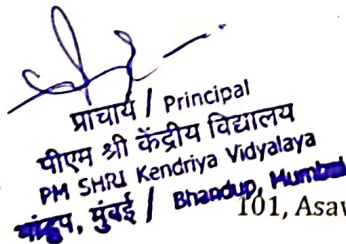 प्राचार्य / Principal
पीएम श्री केंद्रीय विद्यालय
PM SHRI Kendriya Vidyalaya
भांडुप, मुंबई / Bhandup, Mumbai
101, Asaw